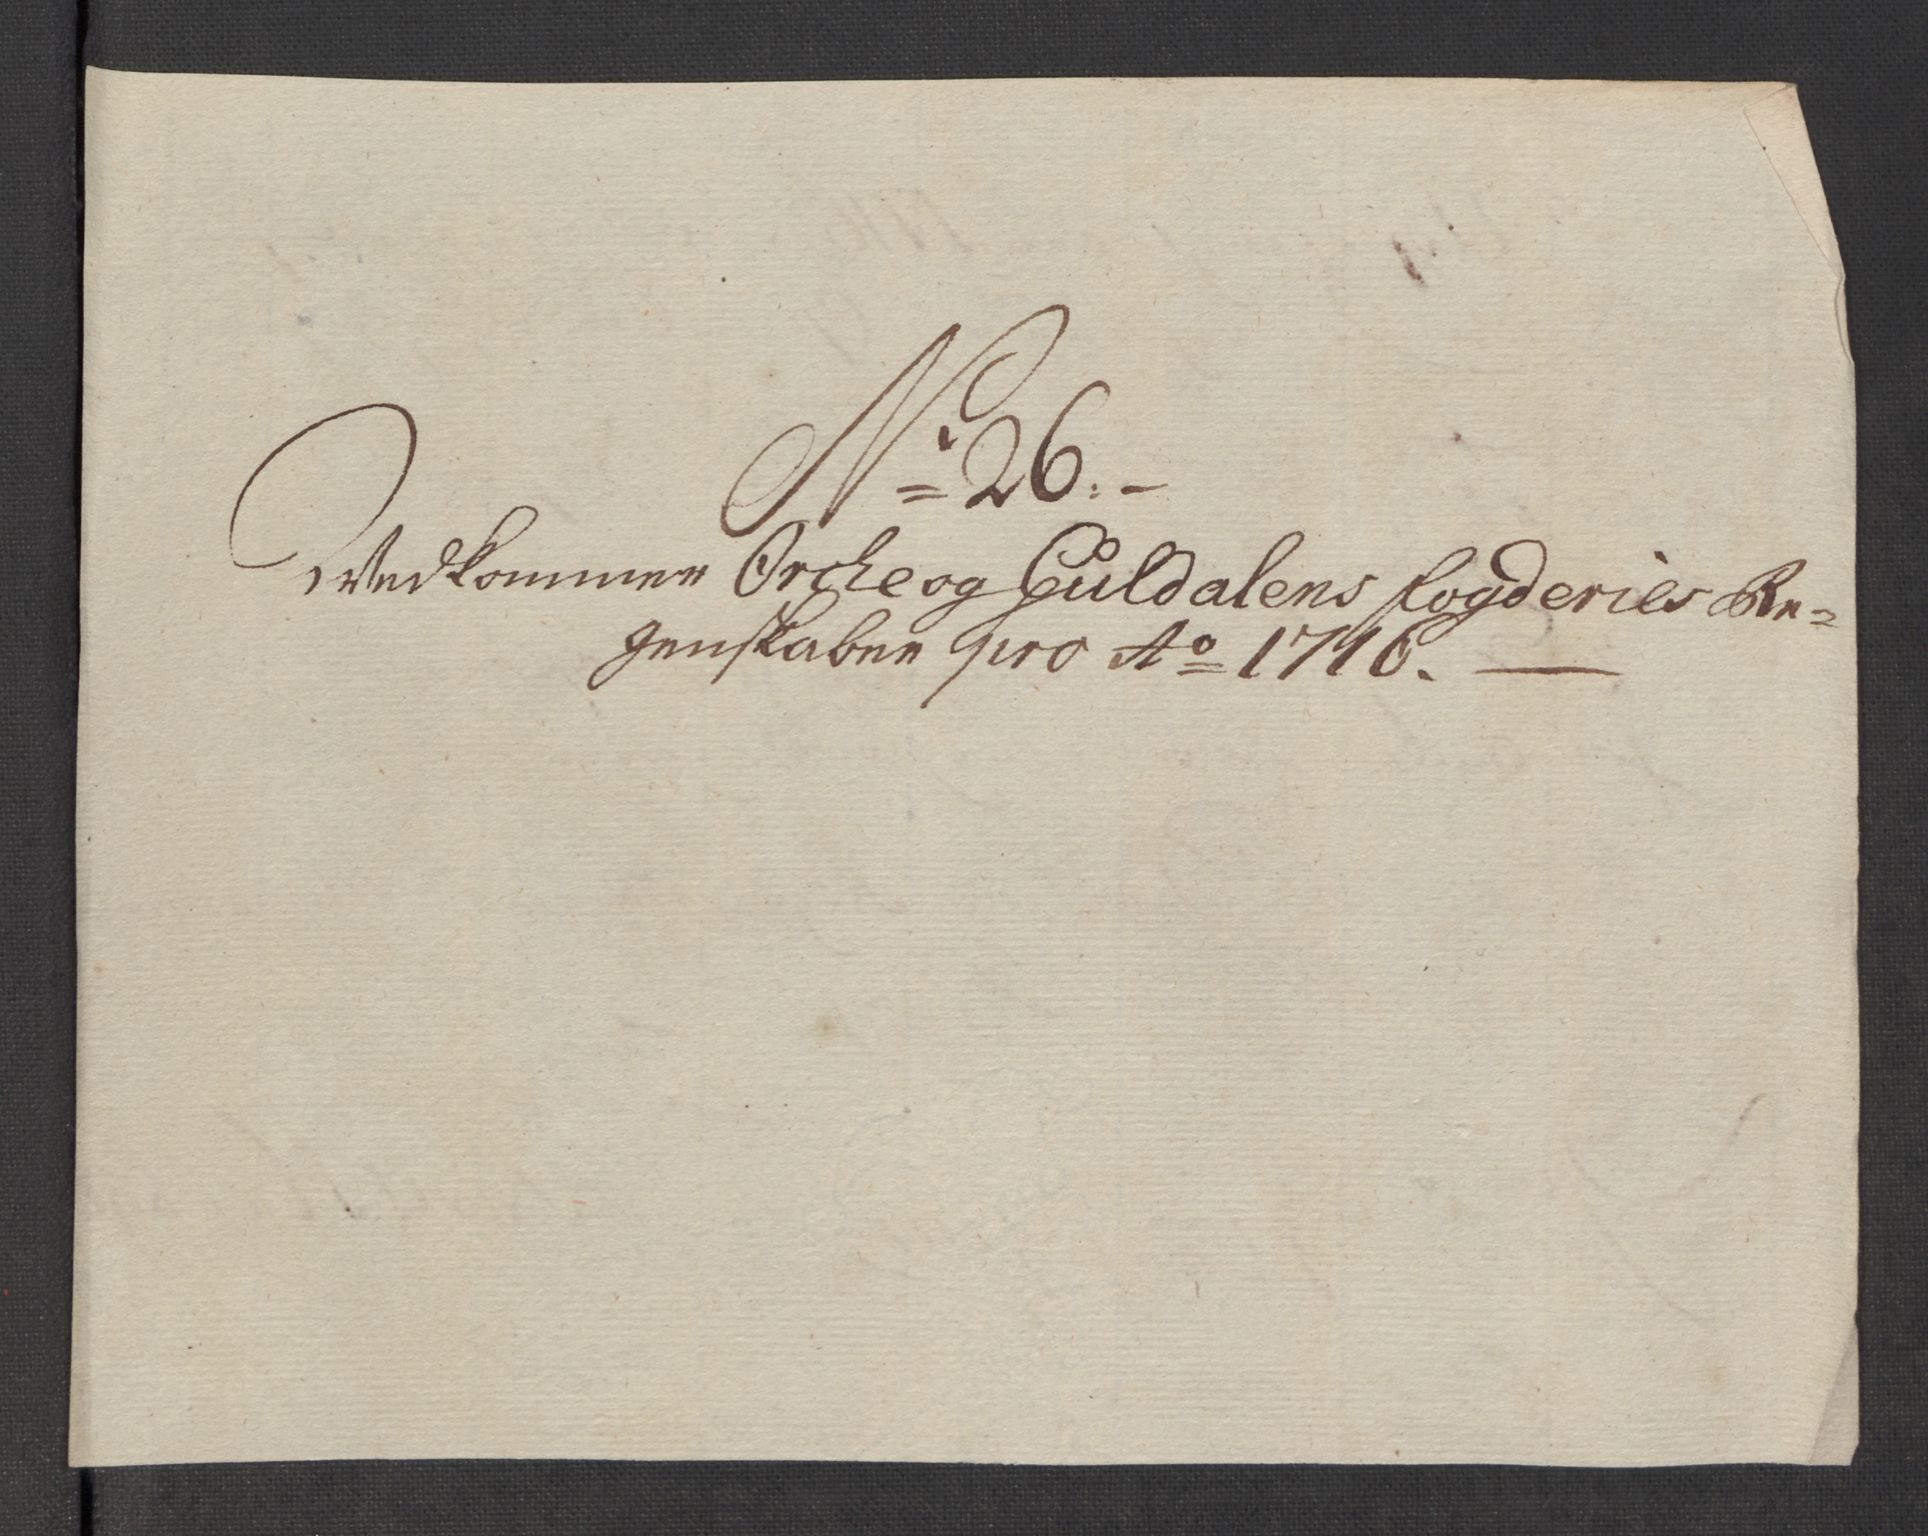 No 26. -
Vedkommer Orche og Guldalens fogderies Re=
genskaber pro Ao 1716. —